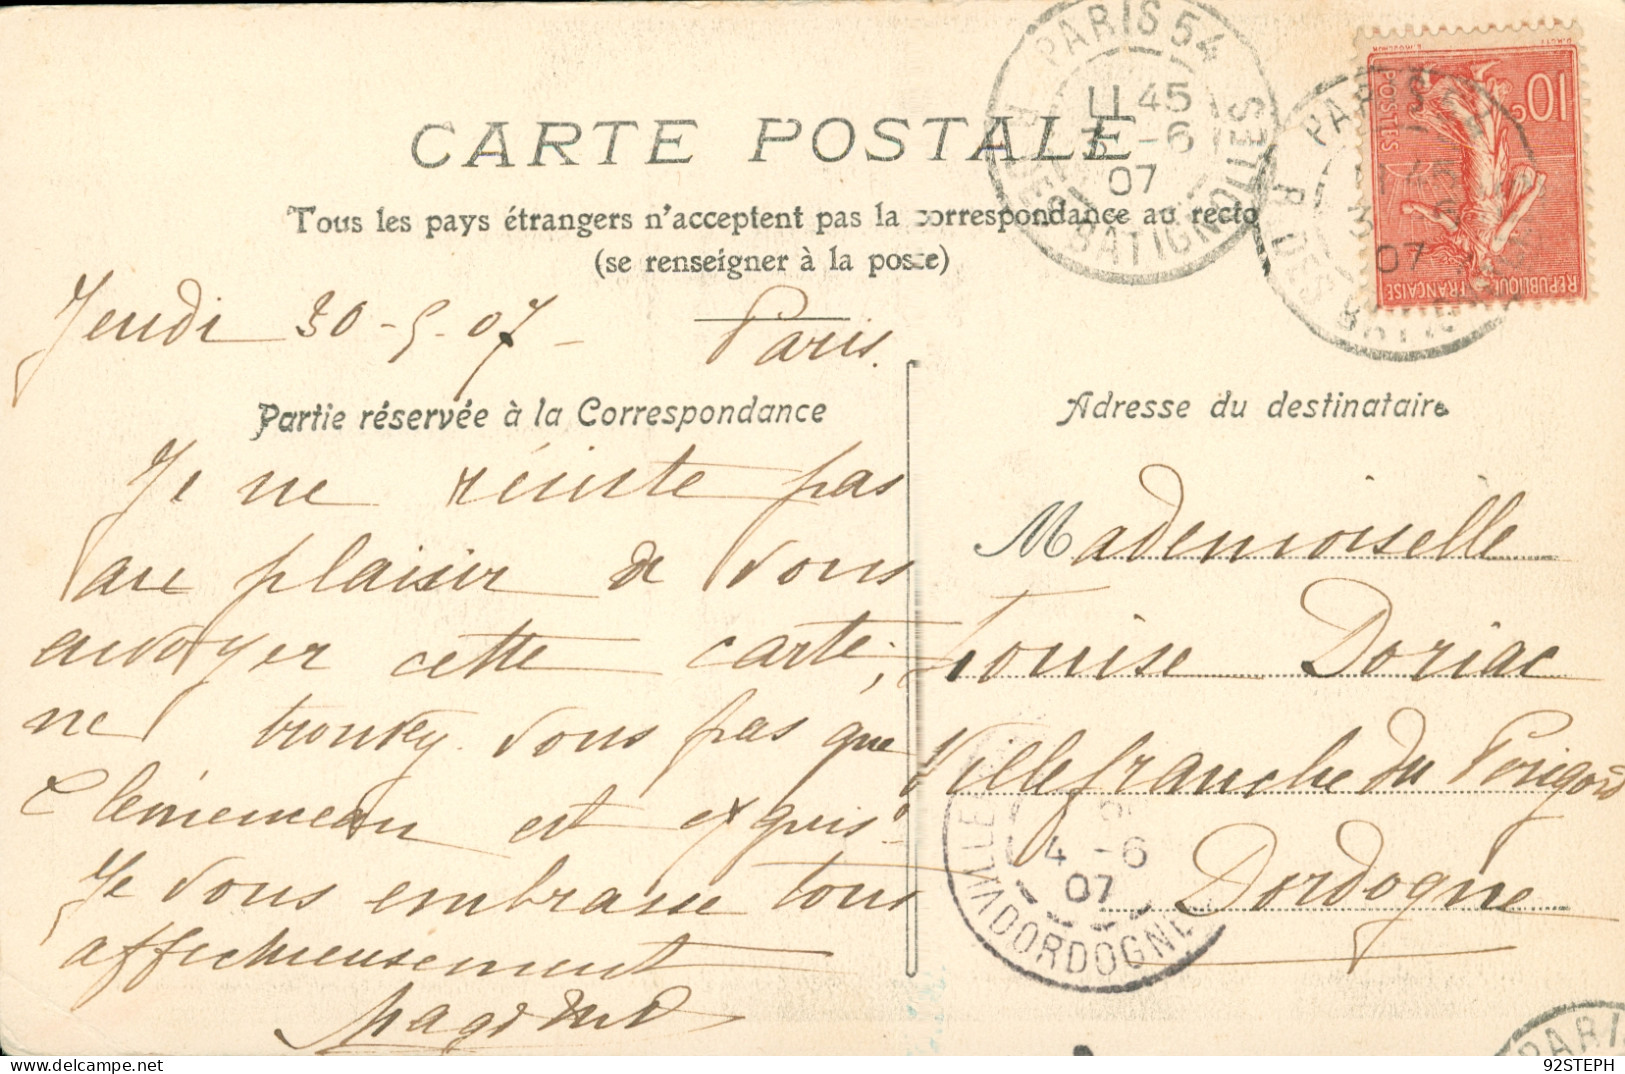 CARTE POSTALE
Tous les pays étrangers n'acceptent pas la correspondance au recto
(se renseigner à la poste)
Jeudi 30-5-07 - Paris.
Partie réservée à la Correspondance
Je ne résiste pas
au plaisir de vous
envoyer cette carte;
ne trouvez vous pas que
Clémenceau est exquis.
Je vous embrasse tous
affectueusement
Adresse du destinataire
Mademoiselle
Louise Doriac
Villefranche du Périgord
Dordogne
PARIS 54
11 45
3 -6
07
R. DES BATIGNOLLES
PARIS
07
R. DES BATIGNOLLES
10c
POSTES
REPUBLIQUE FRANÇAISE
4 -6
07
DORDOGNE
PARIS
92STEPH